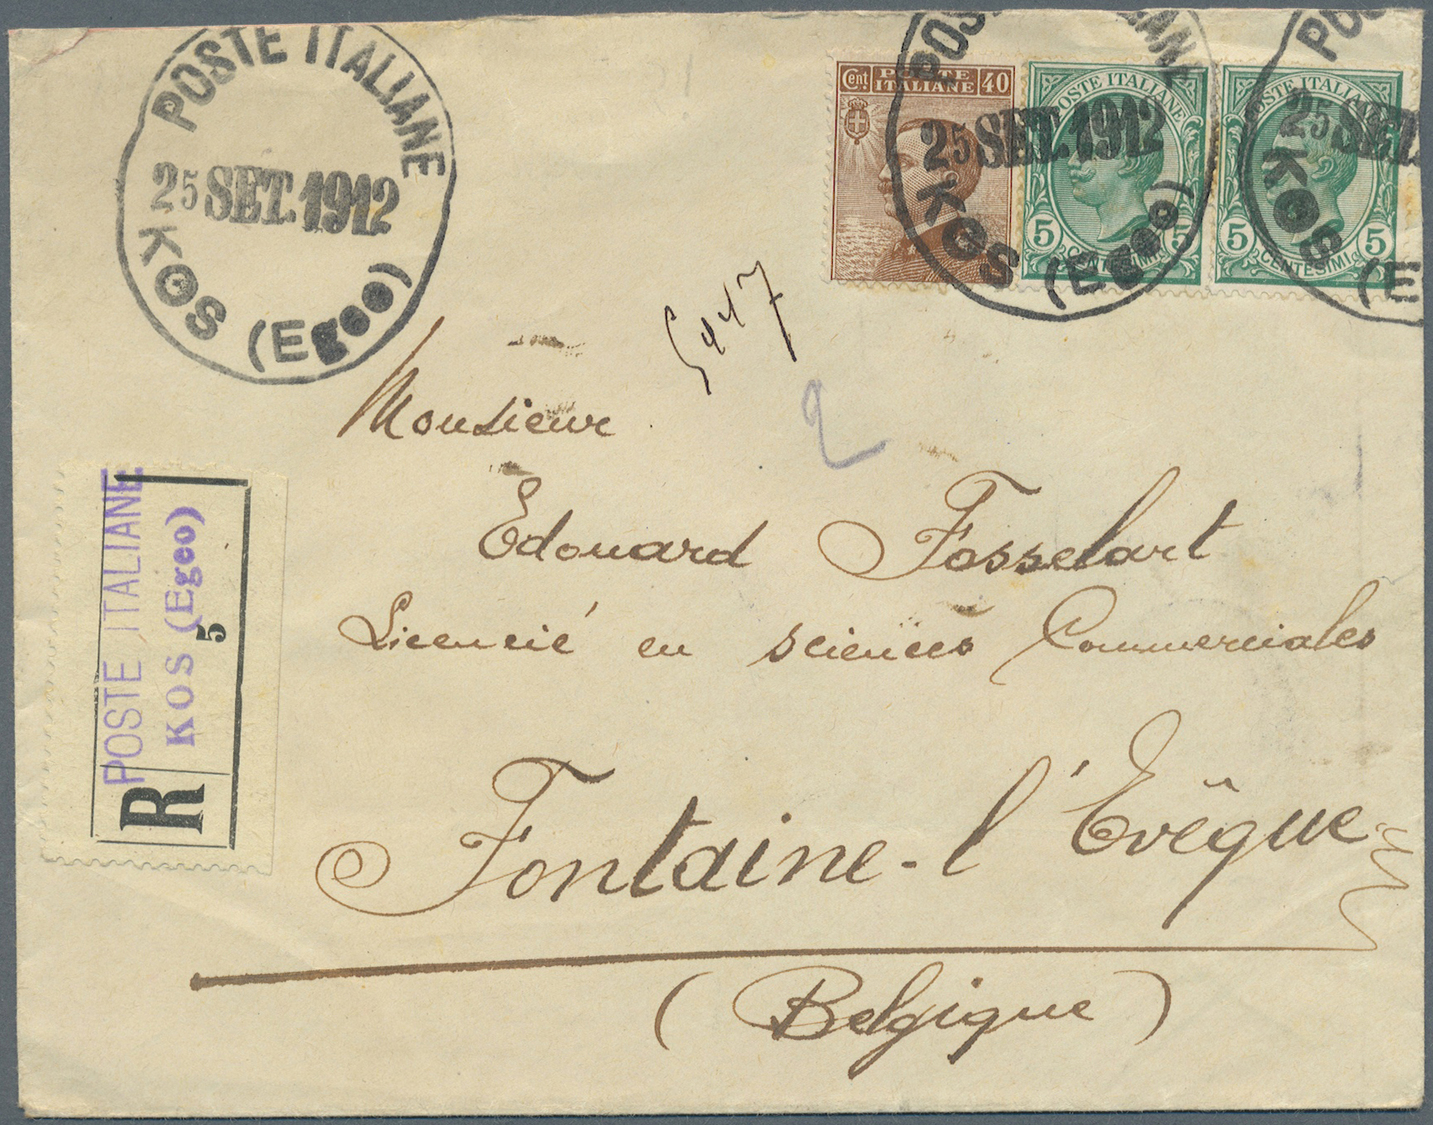 POSTE ITALIANE
25 SET. 1912
KOS (Egeo)
Cent POSTE ITALIANE 40
POSTE ITALIANE
25 SET. 1912
KOS (Egeo)
POSTE ITALIANE
5 CENTESIMI 5
POSTE ITALIANE
25 SET.
KOS (E
5 CENTESIMI 5
2
Monsieur
Edouard Fosselart
Licencié en sciences Commerciales
Fontaine-l'Evêque
(Belgique)
R
POSTE ITALIANE
KOS (Egeo)
5